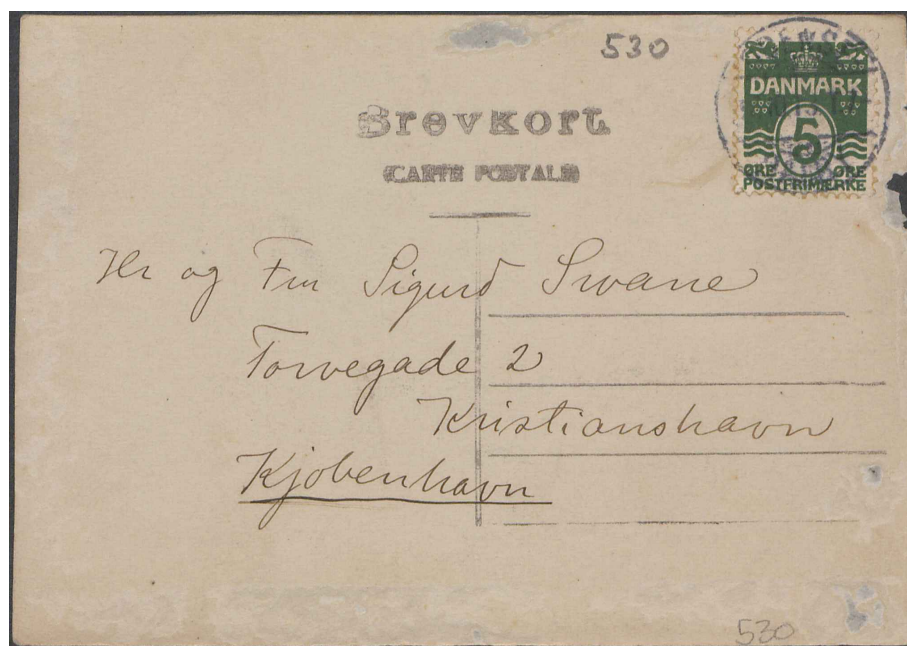 530
DANMARK
5
ØRE ØRE
POSTFRIMÆRKE
Brevkort
(CARTE POSTALE)
Hr og Fru Sigurd Swane
Torvegade 2
Kristianshavn
Kjøbenhavn
530